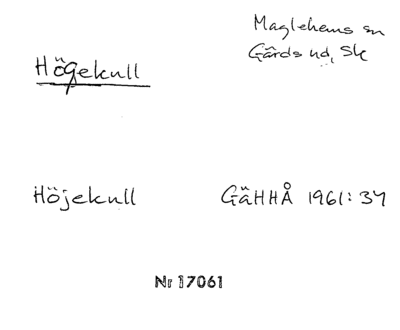 Maglehems sn
Gärds hd, Sk
Högekull
Höjekull GäHHÅ 1961: 34
Nr 17061